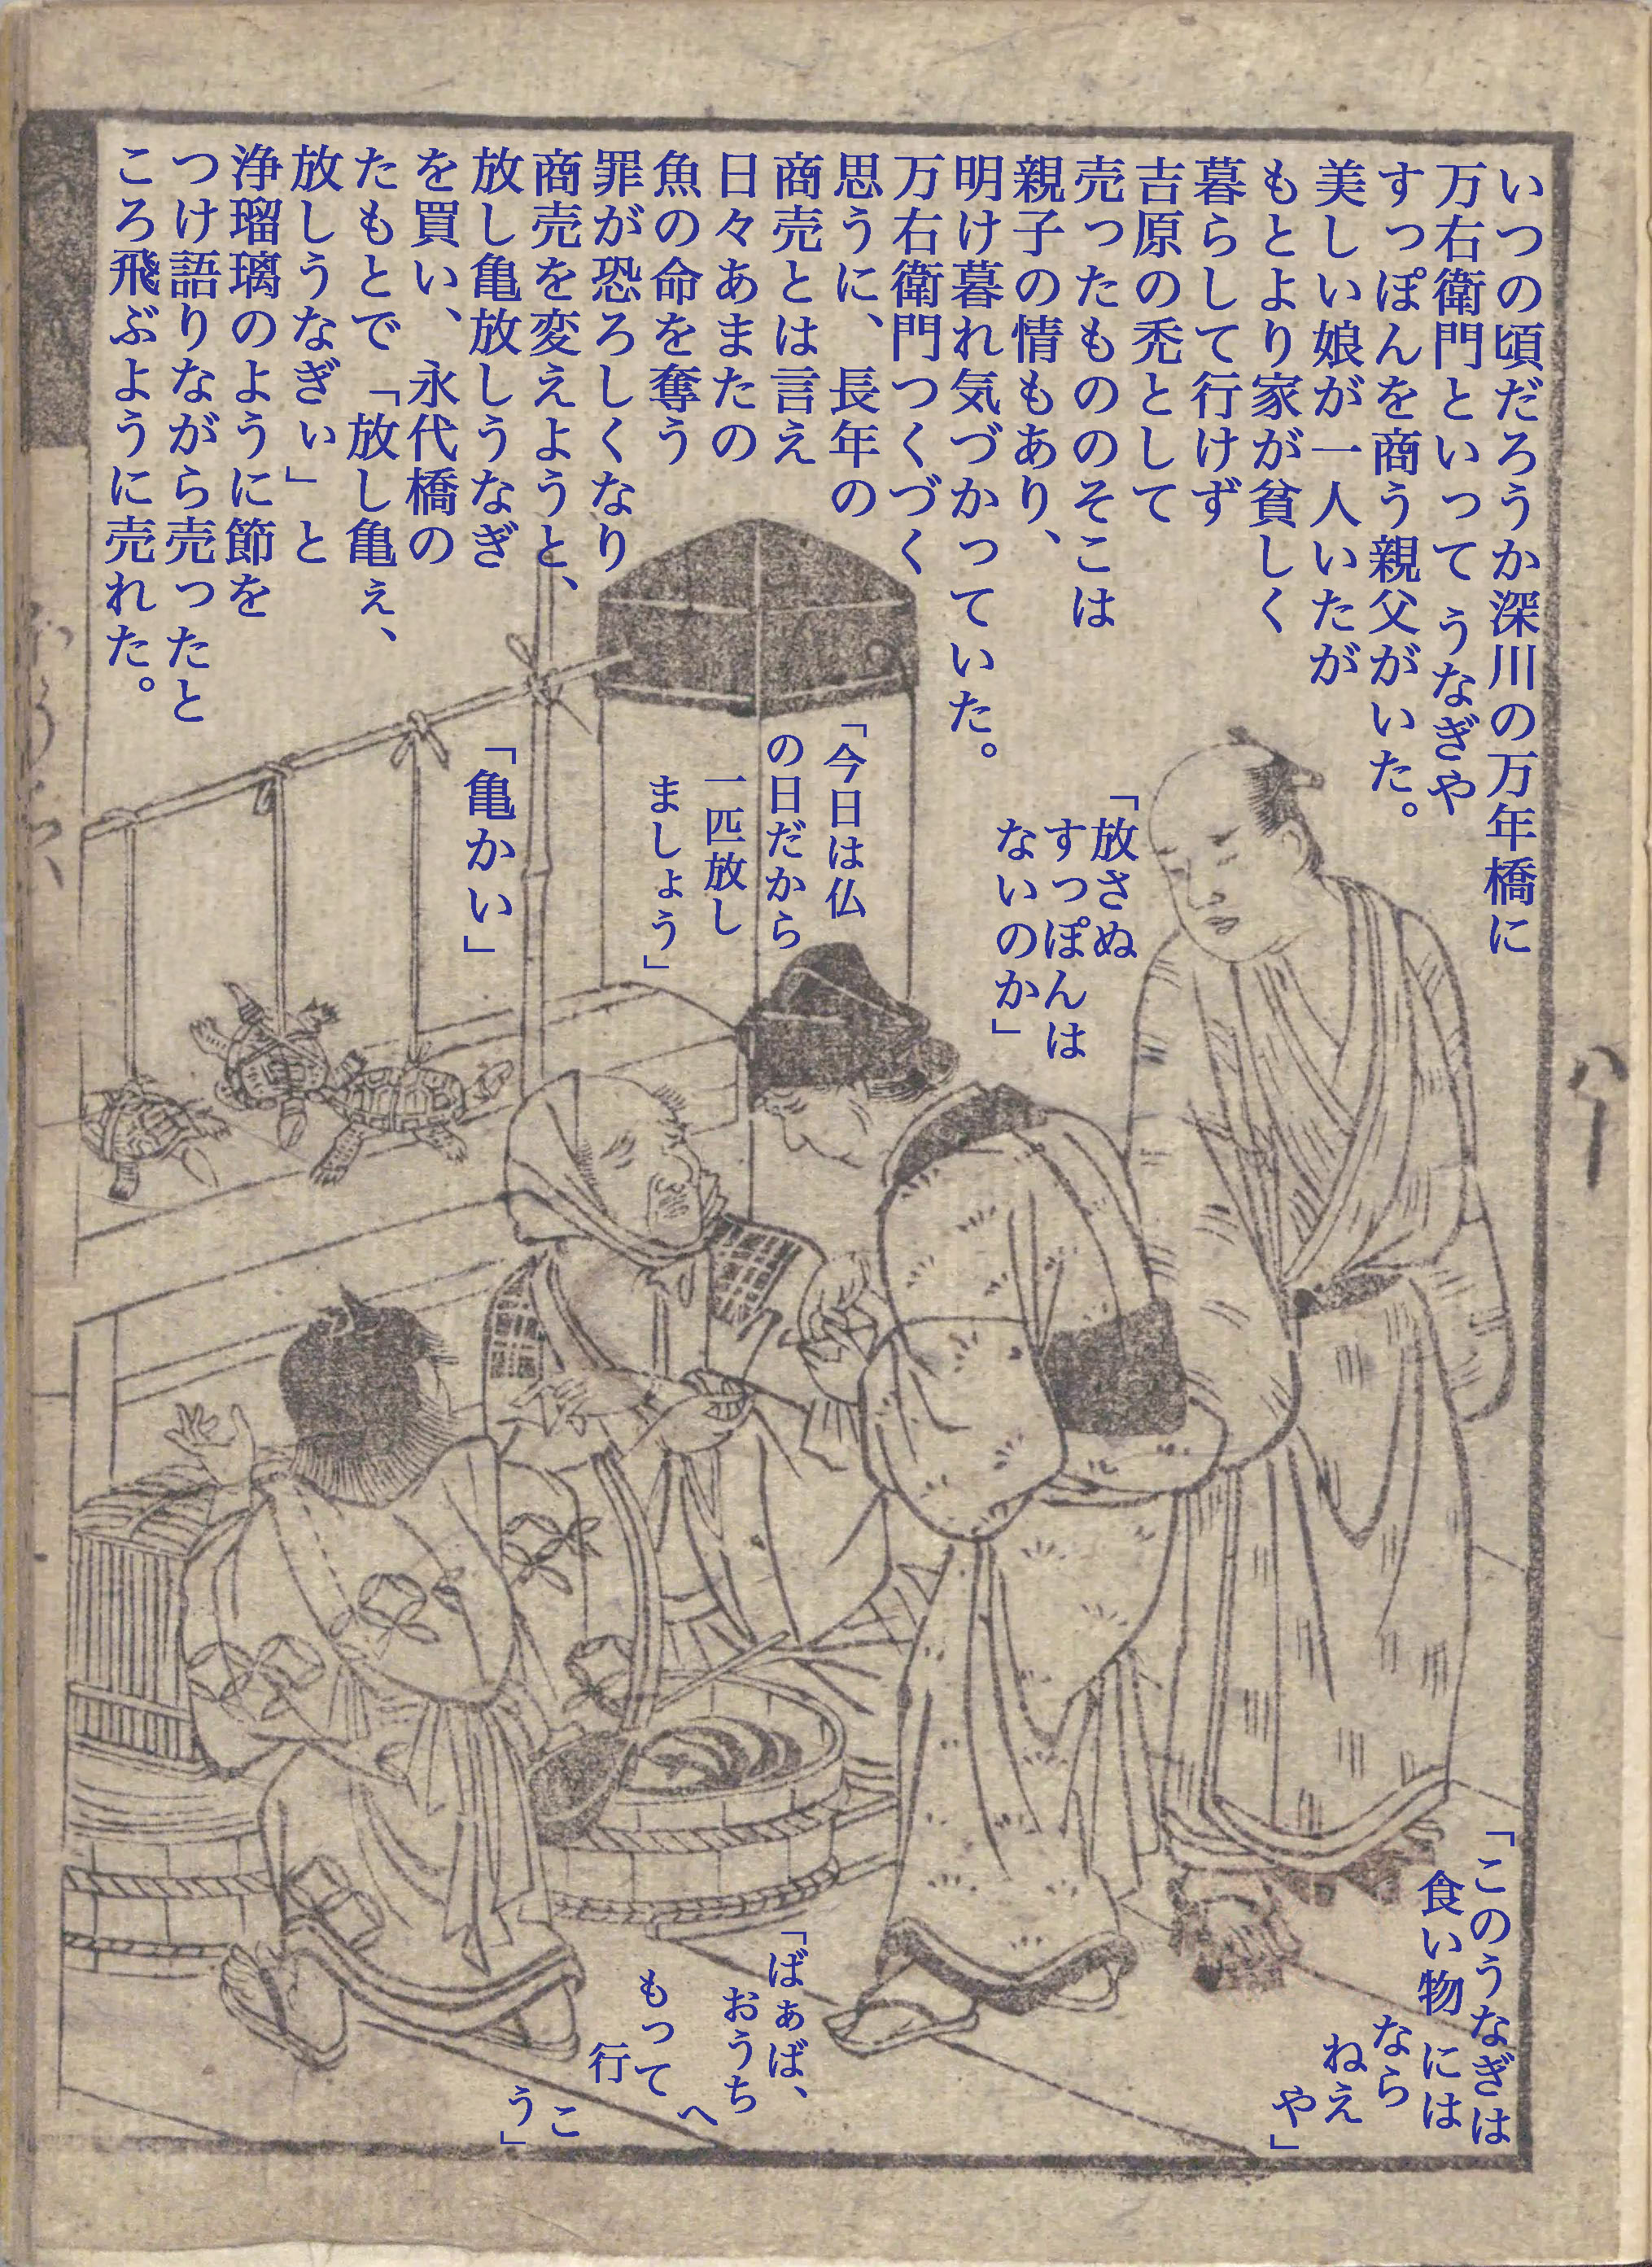 いつの頃だろうか深川の万年橋に
万右衛門といって うなぎや
すっぽんを商う親父がいた。
美しい娘が一人いたが
もとより家が貧しく
暮らして行けず
吉原の禿として
売ったもののそこは
親子の情もあり、
明け暮れ気づかっていた。
万右衛門つくづく
思うに、長年の
商売とは言え
日々あまたの
魚の命を奪う
罪が恐ろしくなり
商売を変えようと、
放し亀放しうなぎ
を買い、永代橋の
たもとで「放し亀ぇ、
放しうなぎぃ」と
浄瑠璃のように節を
つけ語りながら売ったと
ころ飛ぶように売れた。
「放さぬ
すっぽんは
ないのか」
「今日は仏
の日だから
一匹放し
ましょう」
「亀かい」
「このうなぎは
食い物には
なら
ねえ
や」
「ばぁば、
おうち
へ
もって
行
こ
う」